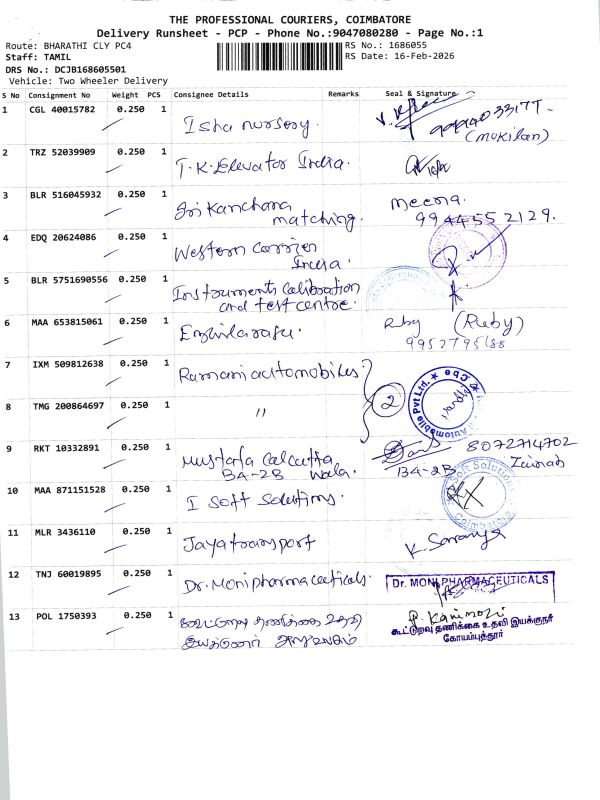 THE PROFESSIONAL COURIERS, COIMBATORE
Delivery Runsheet - PCP - Phone No.:9047080280 - Page No.:1
Route: BHARATHI CLY PC4 RS No.: 1686055
Staff: TAMIL RS Date: 16-Feb-2026
DRS No.: DCJB168605501
Vehicle: Two Wheeler Delivery
S No Consignment No Weight PCS Consignee Details Remarks Seal & Signature
1 CGL 40015782 0.250 1 Isha nursery.
(Mukilan)
2 TRZ 52039909 0.250 1 T.K. Elevator India.
3 BLR 516045932 0.250 1 Sri Kanchana matching. Meena.
9944552129.
4 EDQ 20624086 0.250 1 Western Carrier India.
5 BLR 5751690556 0.250 1 Instruments Calibration and test centre.
6 MAA 653815061 0.250 1 Ezhilarasu. Ruby (Ruby)
9952795688
7 IXM 509812638 0.250 1 Ramani automobiles
8 TMG 200864697 0.250 1 " 2
Automobile Pvt Ltd. ★ Cbe ★
9 RKT 10332891 0.250 1 Mustafa Calcutta Wala. 8072714702
BA-2B BA-2B Zainab
10 MAA 871151528 0.250 1 I Soft Solutions.
Soft Solutions Coimbatore
11 MLR 3436110 0.250 1 Jayatransport K. Saranya
12 TNJ 60019895 0.250 1 Dr. Moni pharmaceuticals. Dr. MONI PHARMACEUTICALS
13 POL 1750393 0.250 1 கூட்டுறவு தணிக்கை உதவி P. Kanimozi
இயக்குனர் அலுவலகம் கூட்டுறவு தணிக்கை உதவி இயக்குநர்
கோயம்புத்தூர்